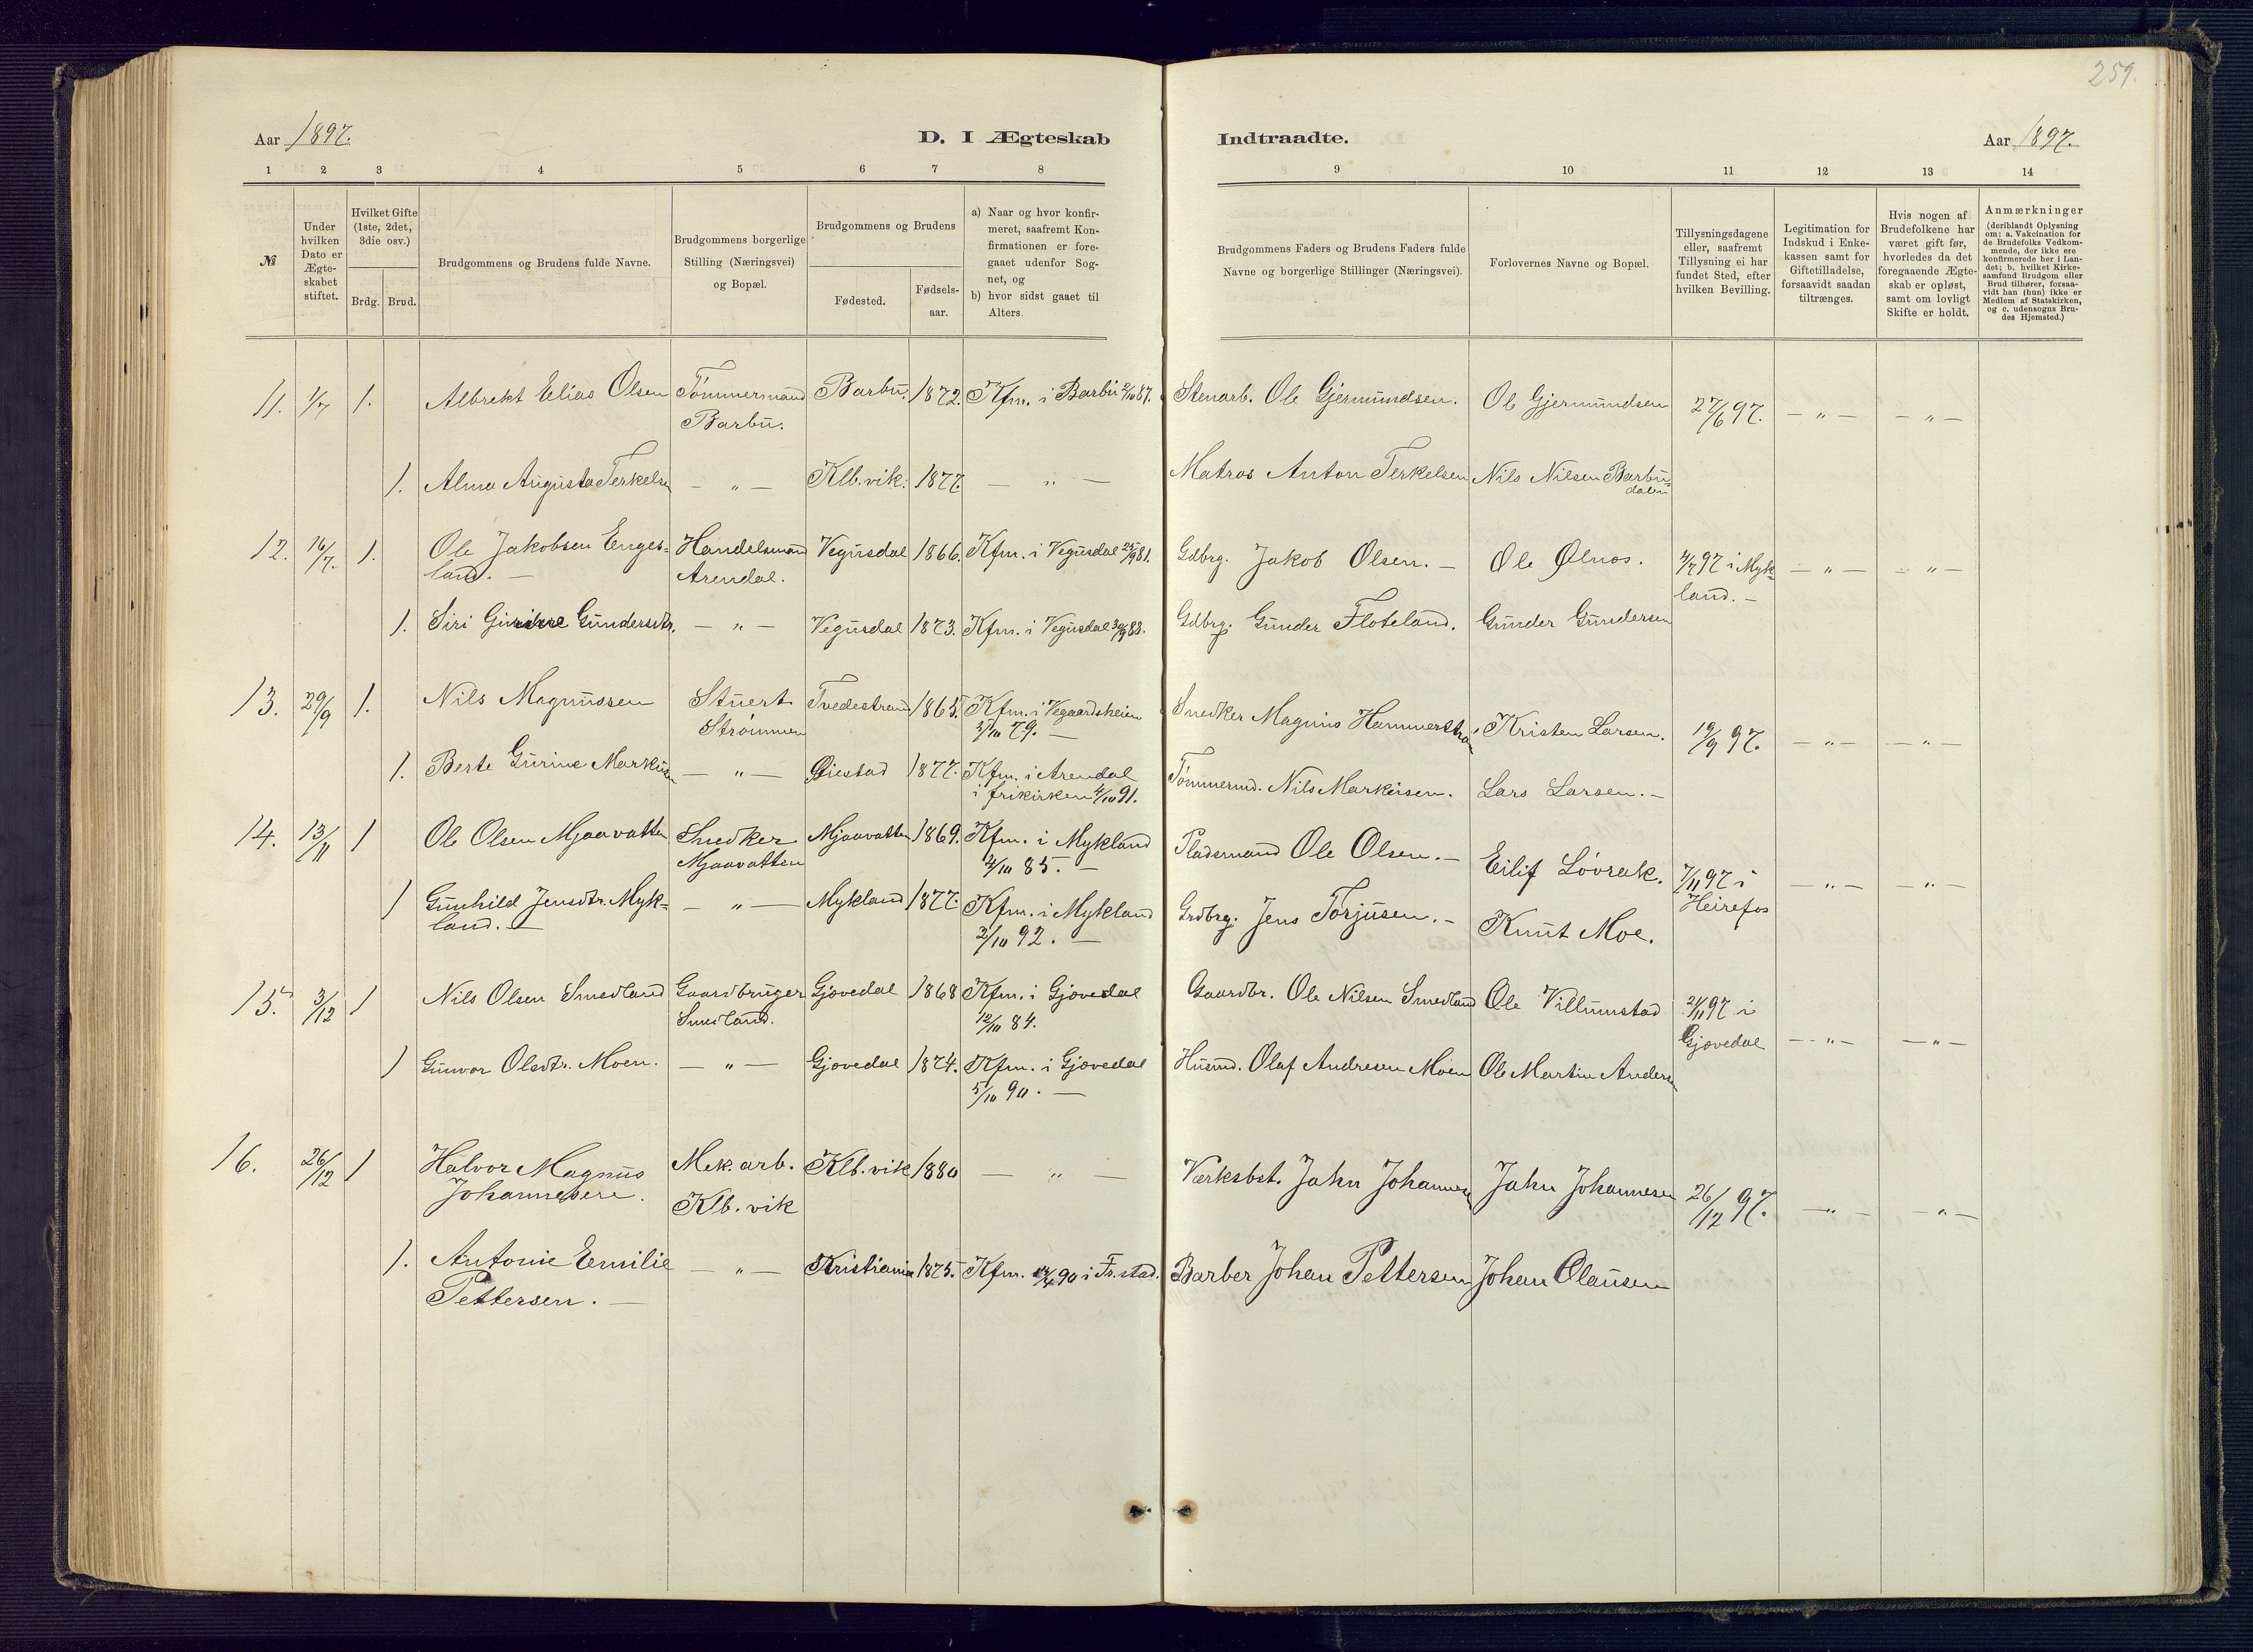 259.
Aar 1897.
D. I Ægteskab
Indtraadte.
Aar 1897.
1 2 3 4 5 6 7 8
9 10 11 12 13 14
№
Under hvilken Dato er Ægte-skabet stiftet.
Hvilket Gifte (1ste, 2det, 3die osv.)
Brdg. Brud.
Brudgommens og Brudens fulde Navne.
Brudgommens borgerlige Stilling (Næringsvei) og Bopæl.
Brudgommens og Brudens
Fødested.
Fødsels-aar.
a) Naar og hvor konfir-meret, saafremt Kon-firmationen er fore-gaaet udenfor Sog-net, og
b) hvor sidst gaaet til Alters.
Brudgommens Faders og Brudens Faders fulde Navne og borgerlige Stillinger (Næringsvei).
Forlovernes Navne og Bopæl.
Tillysningsdagene eller, saafremt Tillysning ei har fundet Sted, efter hvilken Bevilling.
Legitimation for Indskud i Enke-kassen samt for Giftetilladelse, forsaavidt saadan tiltrænges.
Hvis nogen af Brudefolkene har været gift før, hvorledes da det foregaaende Ægte-skab er opløst, samt om lovligt Skifte er holdt.
Anmærkninger (deriblandt Oplysning om: a. Vakcination for de Brudefolks Vedkom-mende, der ikke ere konfirmerede her i Lan-det; b. hvilket Kirke-samfund Brudgom eller Brud tilhører, forsaa-vidt han (hun) ikke er Medlem af Statskirken, og c. udensogns Bru-des Hjemsted.)
11. 1/7 1. Albrekt Elias Olsen Tømmermand Barbu. 1872. Kfm. i Barbu 2/10 87. Stenarb. Ole Gjermundsen. Ole Gjermundsen 27/6 97. — „ — — „ —
Barbu.
1. Alma Augusta Terkelsen — „ — Klb.vik. 1877. — „ — Matros Anton Terkelsen Nils Nilsen Barbu-
dalen
12. 16/7. 1. Ole Jakobsen Enges- Handelsmand Vegusdal 1866. Kfm. i Vegusdal 25/9 81. Gdbrg. Jakob Olsen. — Ole Ølnos. 4/7 97 i Myk- — „ — — „ —
land. — Arendal. land. —
1. Siri Gurine Gundersdtr. — „ — Vegusdal 1873. Kfm. i Vegusdal 30/9 88. Gdbrg. Gunder Floteland. Gunder Gundersen
13. 29/9 1. Nils Magnussen Stuert Tvedestrand 1865. Kfm. i Vegaardsheien Snedker Magnus Hammerstrøm Kristen Larsen. 19/9 97. — „ — — „ —
Strømmen 5/10 79. —
1. Berte Gurine Markusen — „ — Øiestad 1877. Kfm. i Arendal Tømmermd. Nils Markusen. Lars Larsen. —
i frikirken 4/10 91.
14. 13/11 1 Ole Olsen Mjaavatten Snedker Mjaavatten 1869. Kfm. i Mykland Pladsmand Ole Olsen. — Eilif Løvrak. 7/11 97 i — „ — — „ —
Mjaavatten 4/10 85. — Heirefos
1 Gunhild Jensdtr. Myk- — „ — Mykland 1877. Kfm. i Mykland Grdbrg. Jens Torjusen. — Knut Moe.
land. — 2/10 92. —
15. 3/12 1 Nils Olsen Smedland Gaardbruger Gjøvedal 1868 Kfm. i Gjøvedal Gaardbr. Ole Nilsen Smedland Ole Villumstad 21/11 97 i
Smedland. 12/10 84. Gjøvedal — „ — — „ —
1 Gunvor Olsdtr. Moen. — „ — Gjøvedal 1874. Kfm. i Gjøvedal Husmd. Olaf Andresen Moen Ole Martin Andersen
5/10 90. —
16. 26/12 1 Halvor Magnus Mek.arb. Klb.vik 1880 — „ — Verksbst. Jahn Johannesen Jahn Johannesen 26/12 97. — „ — — „ —
Johannesen. Klb.vik
1. Antonie Emilie — „ — Kristiania 1875. Kfm. 90 i Fr.stad. Barber Johan Pettersen Johan Clausen
Pettersen. —